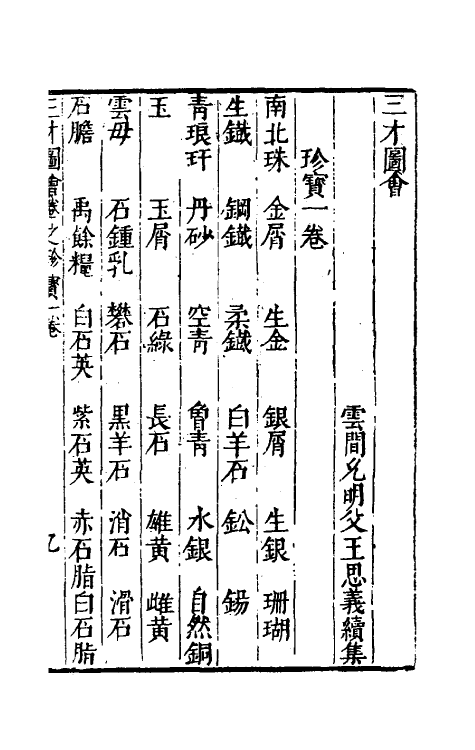 三才圖會
雲間允明父王思義續集
珍寶一卷
南北珠 金屑 生金 銀屑 生銀 珊瑚
生鐵 鋼鐵 柔鐵 白羊石 鈆 錫
青琅玕 丹砂 空青 曾青 水銀 自然銅
玉 玉屑 石綠 長石 雄黃 雌黃
雲母 石鍾乳 礬石 黑羊石 消石 滑石
石膽 禹餘糧 白石英 紫石英 赤石脂 白石脂
三才圖會卷之珍寶一卷